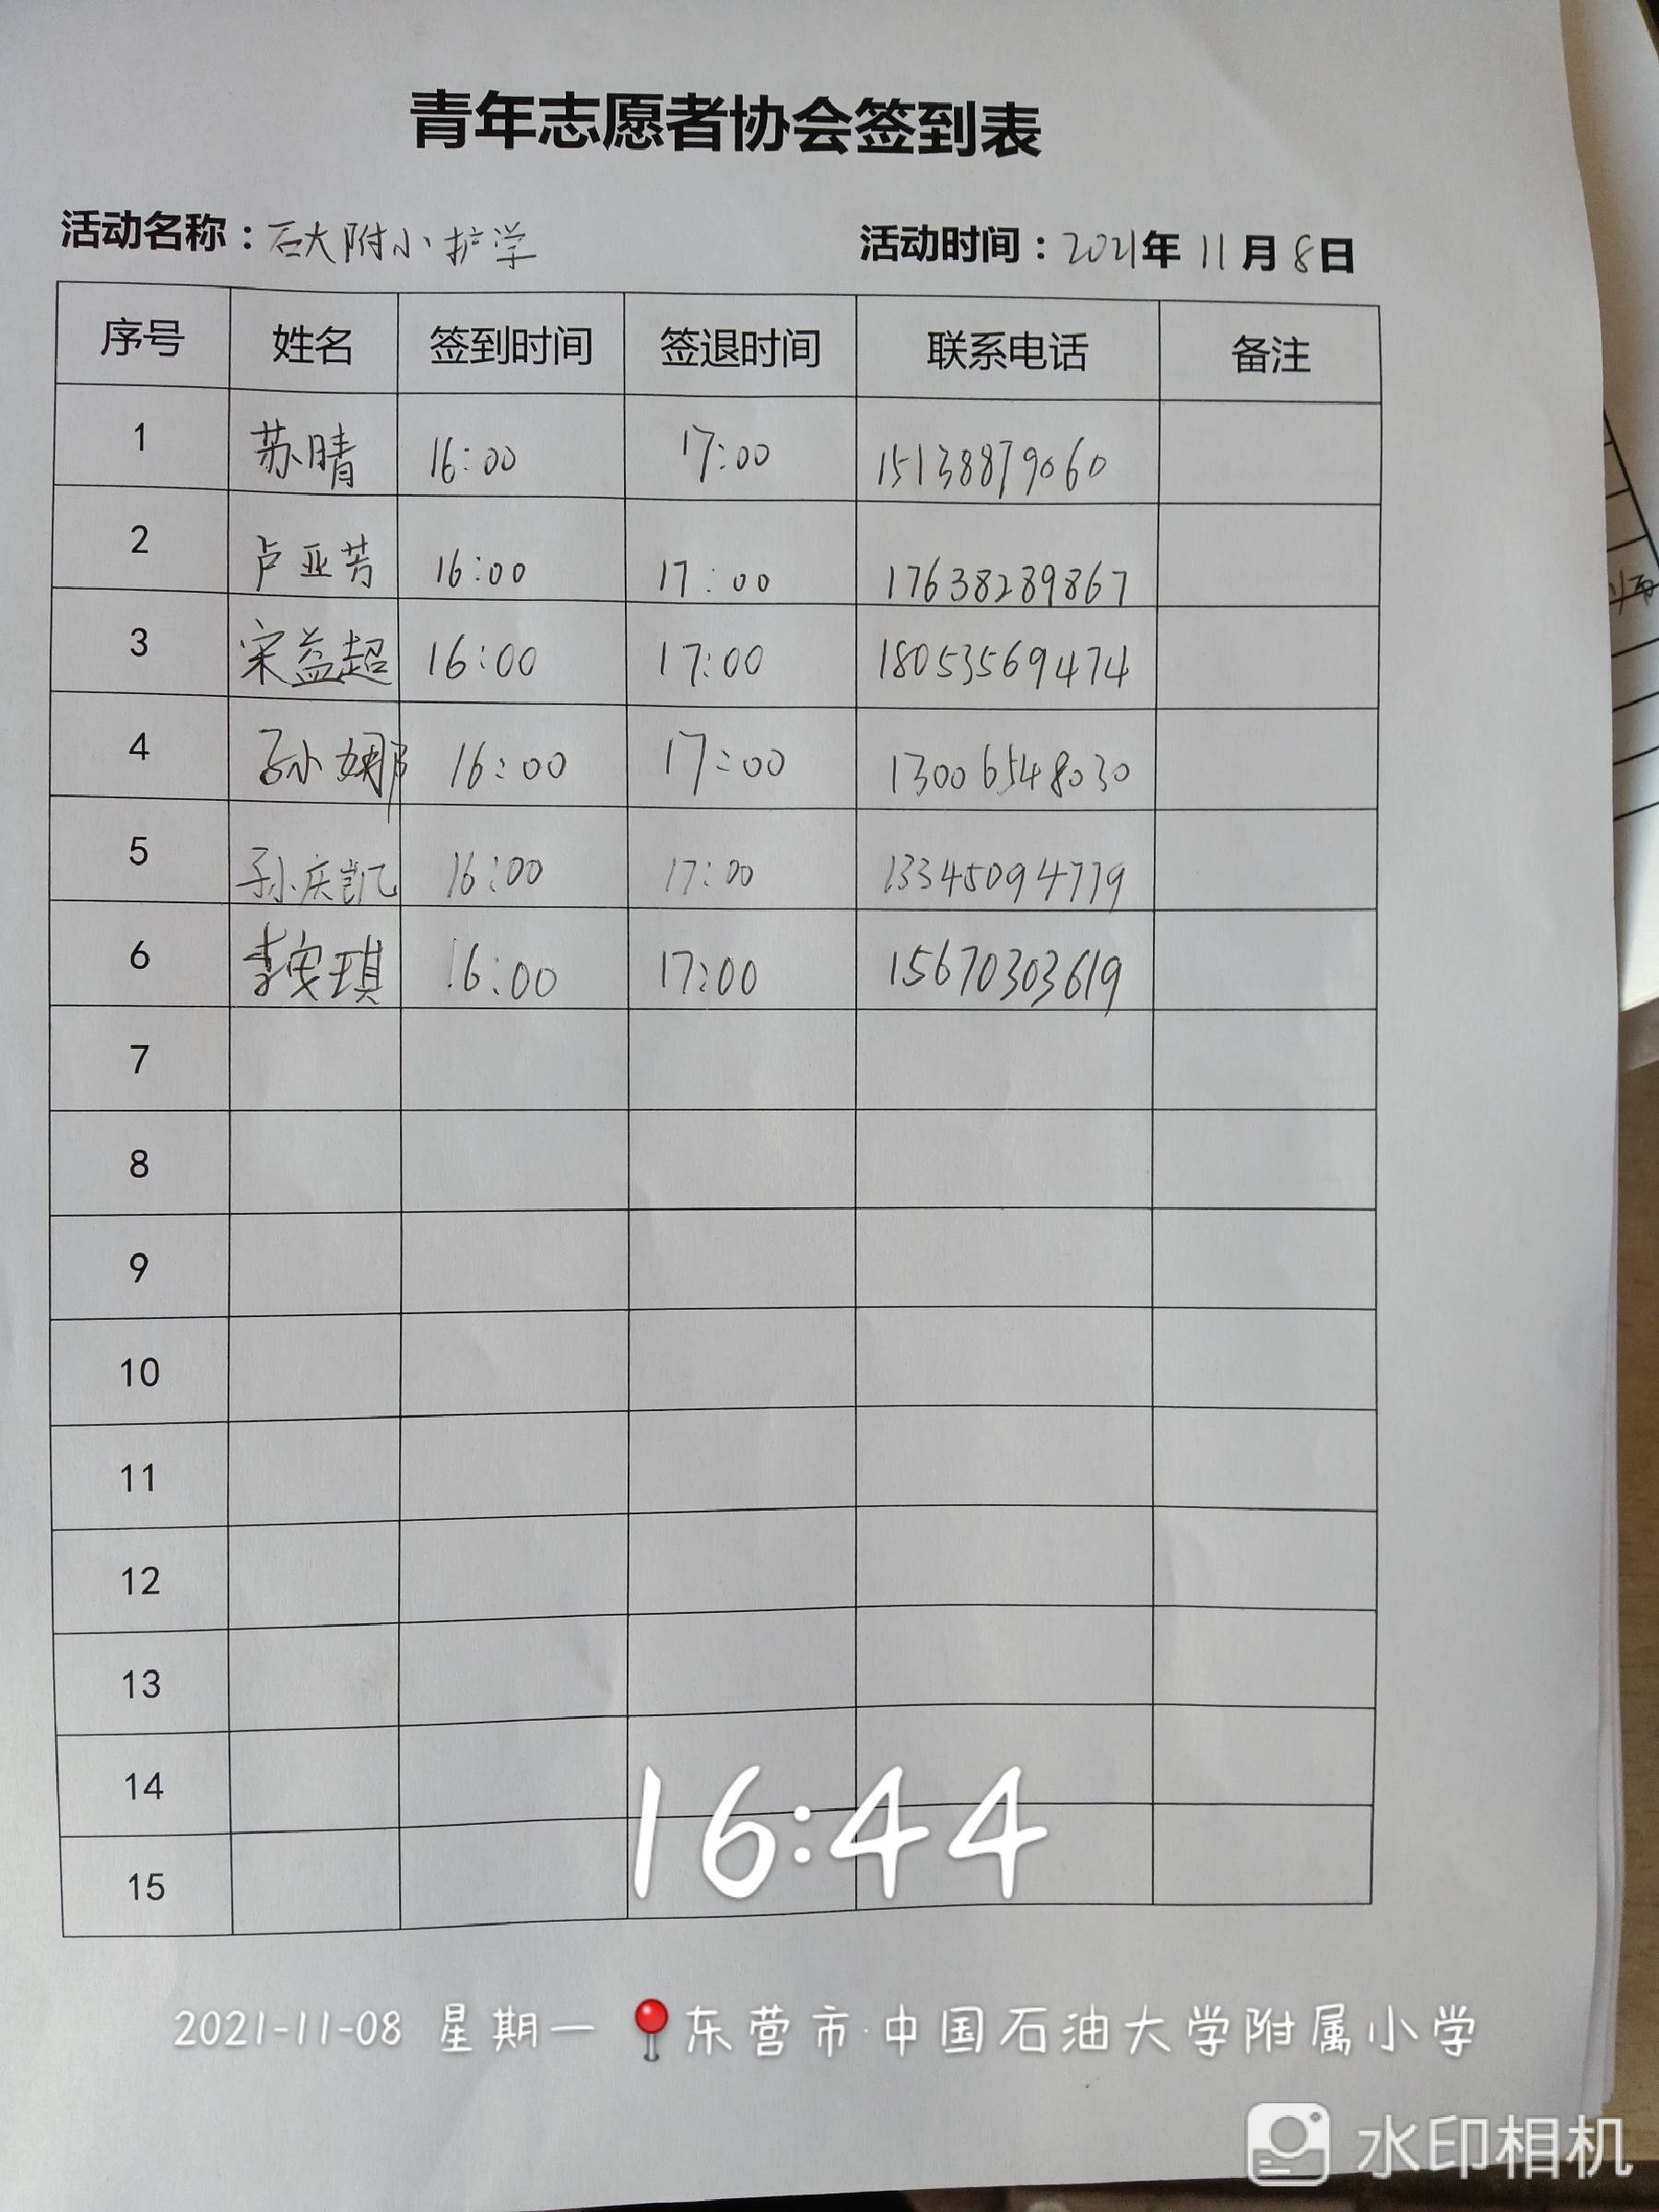 青年志愿者协会签到表
活动名称：石大附小护学 活动时间：2021年11月8日
序号 姓名 签到时间 签退时间 联系电话 备注
1 苏晴 16:00 17:00 15138879060
2 卢亚芳 16:00 17:00 17638289867
3 宋益超 16:00 17:00 18053569474
4 孙小娜 16:00 17:00 13006548030
5 孙庆凯 16:00 17:00 13345094779
6 李安琪 16:00 17:00 15670303619
7
8
9
10
11
12
13
14
15
16:44
2021-11-08 星期一 东营市·中国石油大学附属小学
水印相机